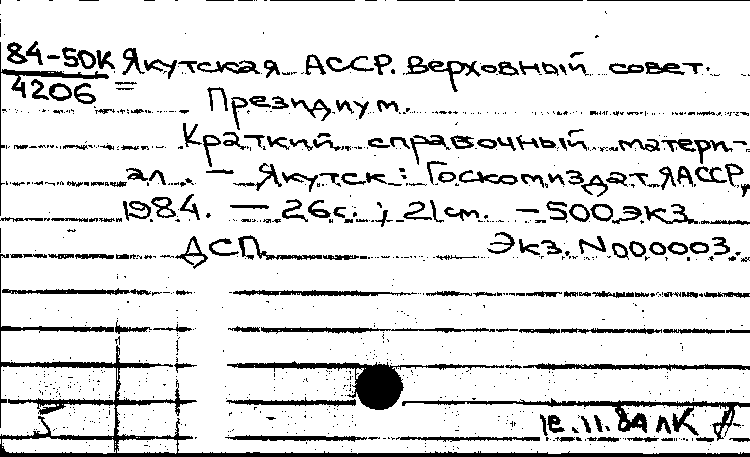 84-50К Якутская АССР. Верховный совет.
4206 Президиум.
Краткий справочный матери-
ал. — Якутск: Госкомиздат ЯАССР,
1984. — 26с. ; 21см. — 500экз
ДСП. Экз. N000003.
11.84 ЛК